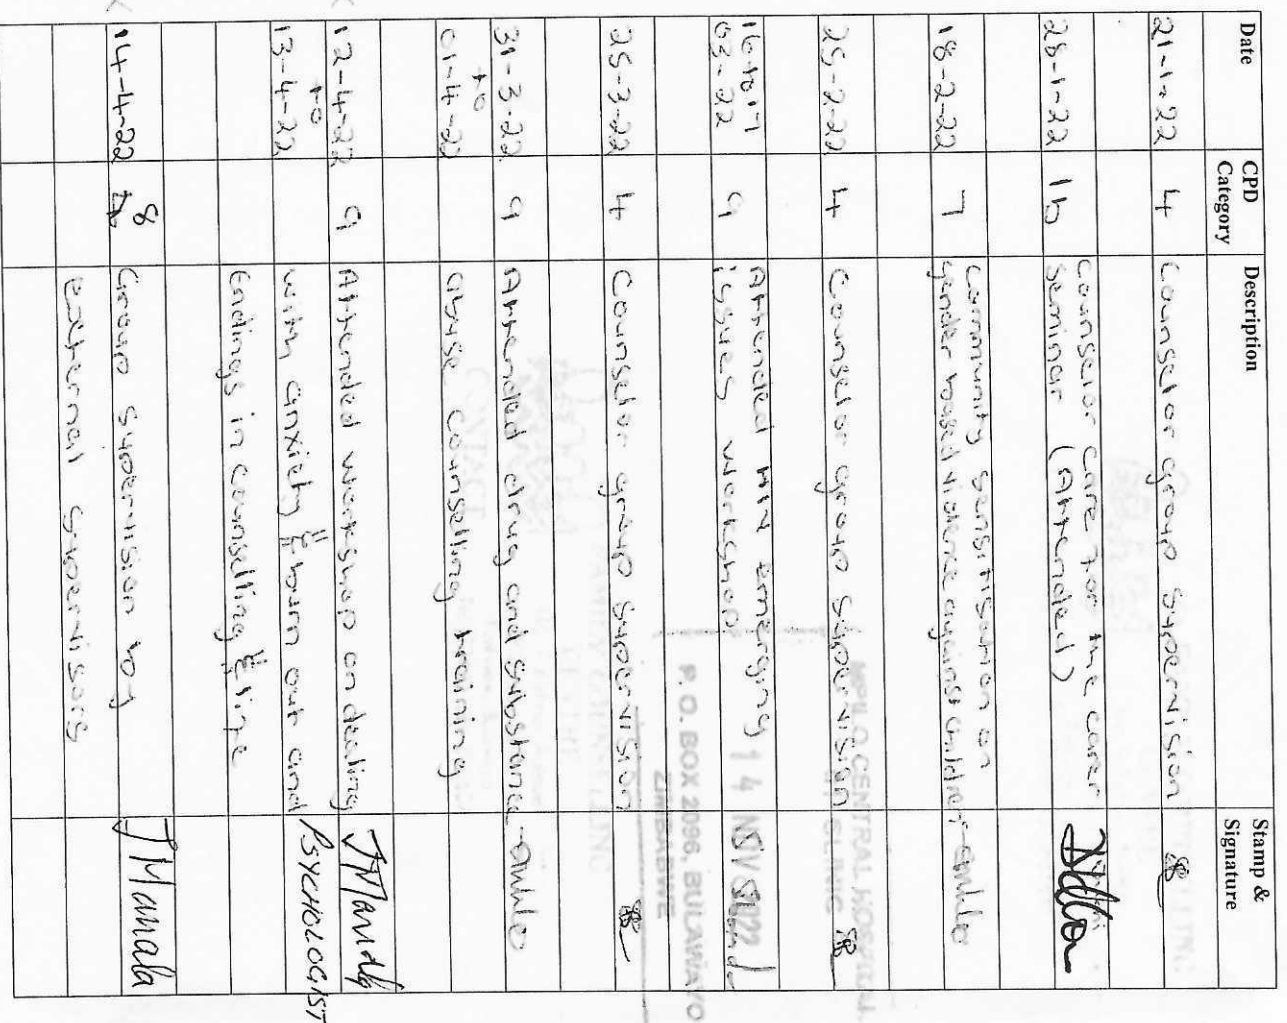 Date CPD Category Description Stamp & Signature
21-1-22 4 Counselor group supervision
28-1-22 1b Counselor care 700 the carer
seminar (Attended)
18-2-22 7 Community sensitisation on
gender based violence against children
25-2-22 4 Counselor group supervision
16 to 17 Attended HIV emerging
03-22 9 issues workshop
25-3-22 4 Counselor group supervision
31-3-22 9 Attended drug and substance
to
01-4-22 abuse counselling training
12-4-22 9 Attended workshop on dealing JMamala
to
13-4-22 with anxiety & burn out and PSYCHOLOGIST
Endings in counselling & life
14-4-22 8 Group supervision by JMamala
external supervisors
MPILO CENTRAL HOSPITAL
CLINIC
14 NOV 2022
P. O. BOX 2096, BULAWAYO
ZIMBABWE